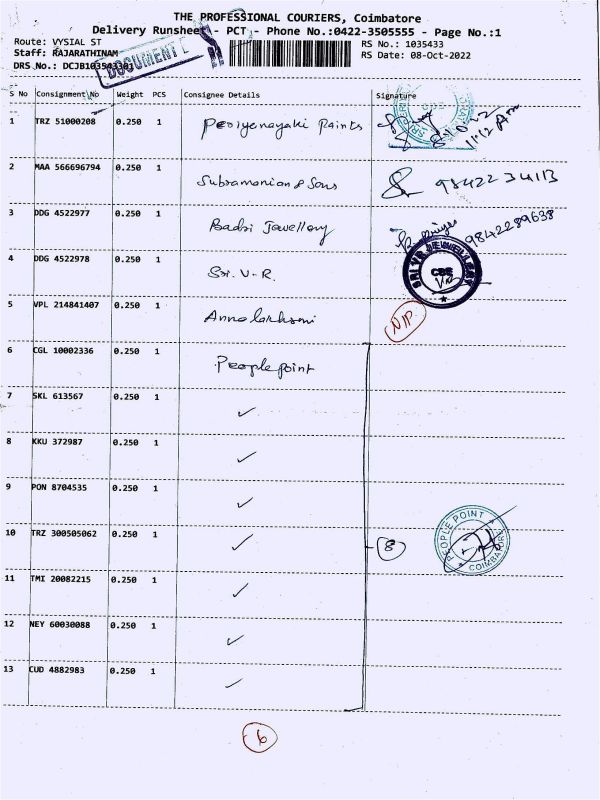 THE PROFESSIONAL COURIERS, Coimbatore
Delivery Runsheet - PCT - Phone No.:0422-3505555 - Page No.:1
Route: VYSIAL ST RS No.: 1035433
Staff: RAJARATHINAM RS Date: 08-Oct-2022
DRS No.: DCJB103543301
DOCUMENT
S No Consignment No Weight PCS Consignee Details Signature
1 TRZ 51000208 0.250 1 Periyenayaki Paints
11:12 Am
2 MAA 566696794 0.250 1 Subramanian & Sons 98422 34113
3 DDG 4522977 0.250 1 Badri Jewellery 9842289638
4 DDG 4522978 0.250 1 Sri. V-R. SRI VR JEWELLERY CBE
5 VPL 214841407 0.250 1 Annalakhsmi N/P
6 CGL 10002336 0.250 1 People point
7 SKL 613567 0.250 1 ✓
8 KKU 372987 0.250 1 ✓
9 PON 8704535 0.250 1 ✓
10 TRZ 300505062 0.250 1 ✓ 8 PEOPLE POINT COIMBATORE
11 TMI 20082215 0.250 1 ✓
12 NEY 60030088 0.250 1 ✓
13 CUD 4882983 0.250 1 ✓
6